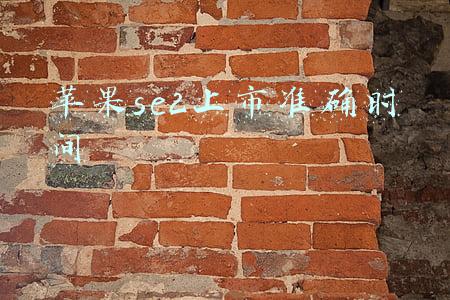 苹果se2上市准确时
间